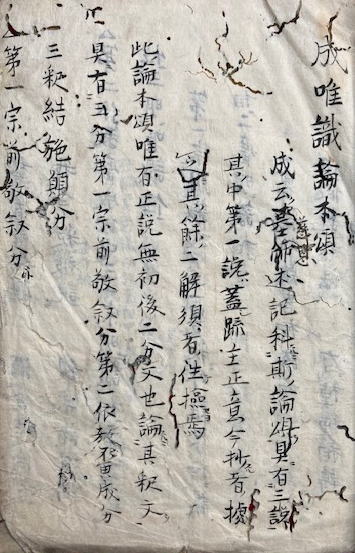 成唯識論本頌
成云基師述記科斯論組具有三說
其中第一說蓋疏主正意今抄者據
其餘二解須者性撿焉
此論本頌唯有正說無初後二分文也論其釈文
具有三分第一宗前敬叙分第二依教広成分
三釈結施願分
第一宗前敬叙分